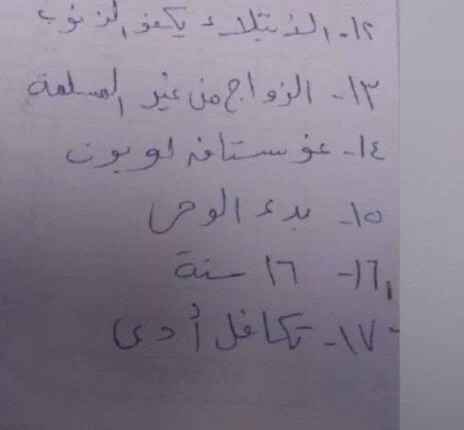 ١٢- الابتلاء يكفر الذنوب
١٣- الزواج من غير المسلمة
١٤- غوستاف لوبون
١٥- بدء الوحي
١٦- ١٦ سنة
١٧- تكافل أدبى